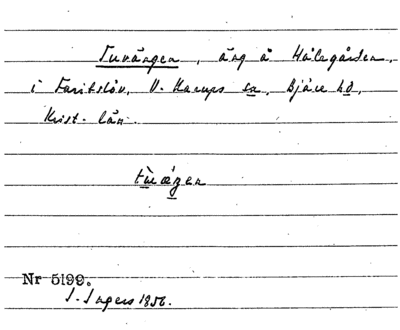 Tuvången, äng å Hålegården,
i Faritslöv, V. Karups sn, Bjäre hd,
Krist. län.
tùvǽŋen
Nr 5199.
S. Ingers 1956.